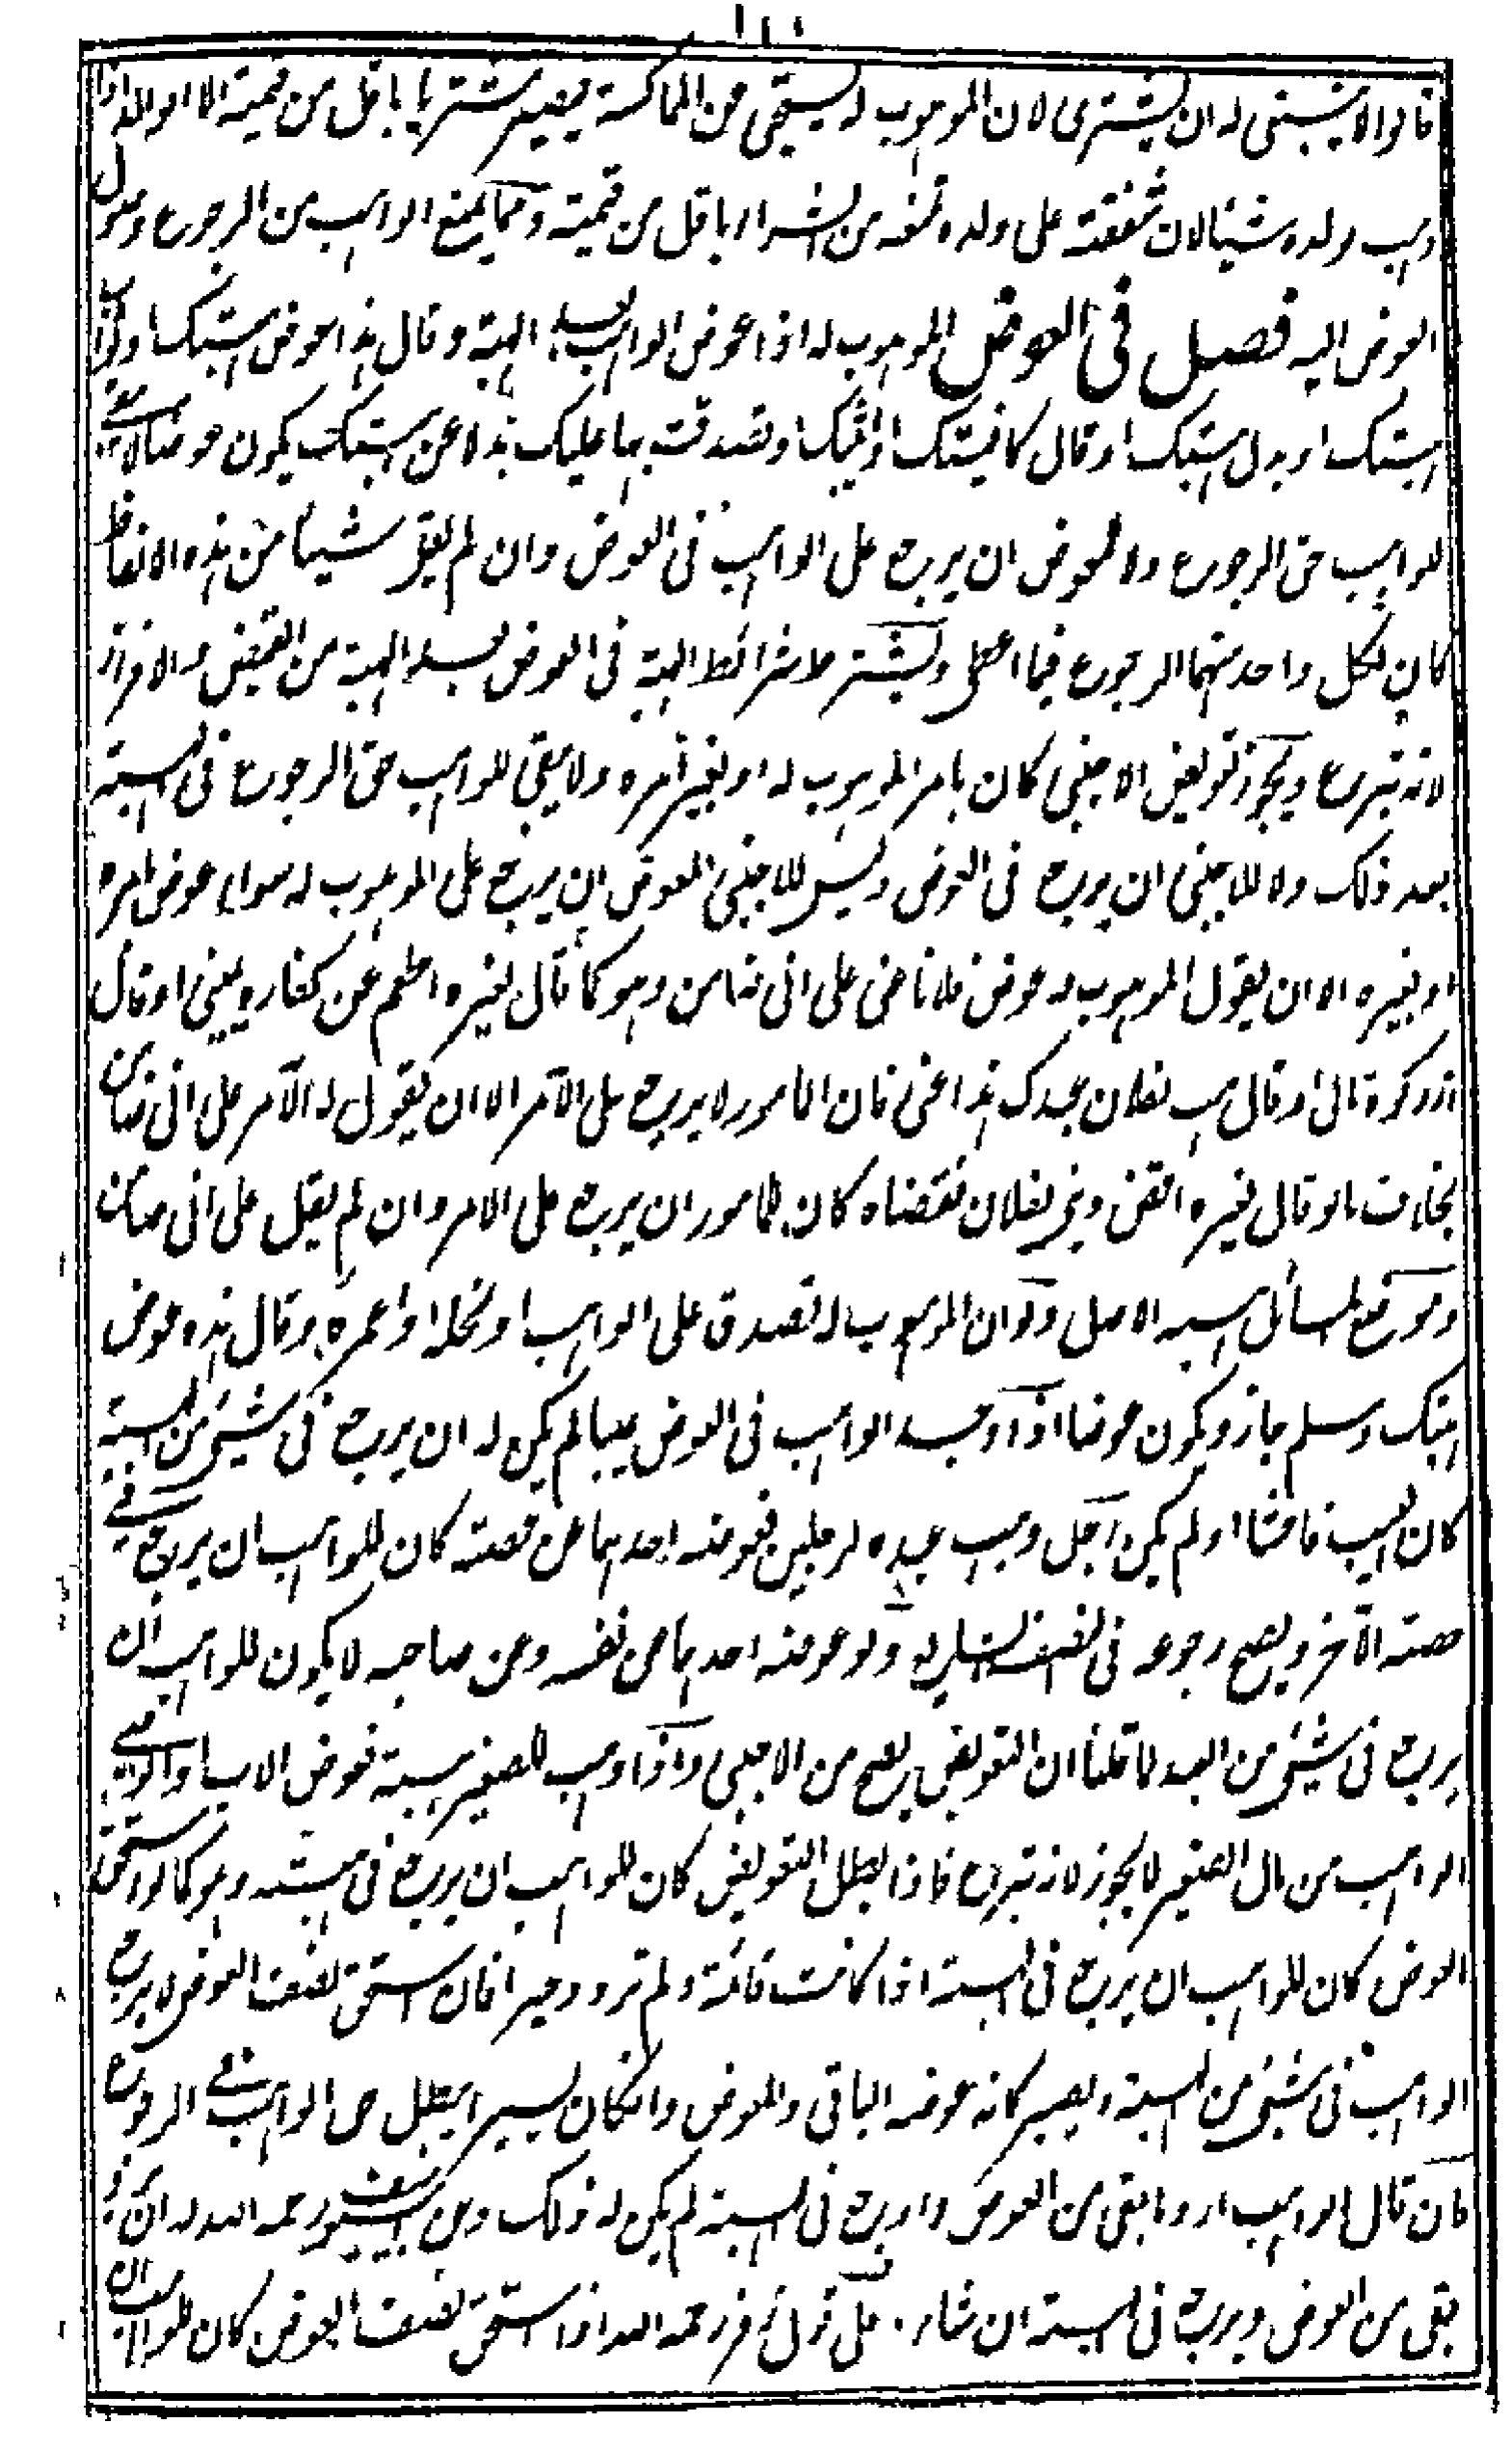 ١١٠
قالوا لا ينبغى له ان يشترى لان الموهوب له يستحي عن المماكسة يصير مشتريا باقل من قيمته الا الوالد اذا
وهب لولده شيئا لان شفقته على ولده تمنعه من الشراء باقل من قيمته ومما يمنع الواهب من الرجوع وصول
العوض اليه فصل فى العوض الموهوب له اذا عوض الواهب بعد الهبة وقال هذا عوض هبتك او ثواب
هبتك او بدل هبتك او قال كافيتك او اثبتك او تصدقت بها عليك بدلا عن هبتك يكون عوضا لا يبقى
للواهب حق الرجوع ولا للمعوض ان يرجع على الواهب فى العوض وان لم يقل شيئا من هذه الالفاظ
كان لكل واحد منهما الرجوع فيما اعطى ويشترط شرائط الهبة فى العوض بعد الهبة من القبض والافراز
لانه تبرع ويجوز تعويض الاجنبى كان بامر الموهوب له او بغير امره ولا يبقى للواهب حق الرجوع فى الهبة
بعد ذلك ولا للاجنبى ان يرجع فى العوض وليس للاجنبى المعوض ان يرجع على الموهوب له سواء عوض بامره
او بغيره الا ان يقول الموهوب له عوض فلانا عنى على انى ضامن وهو كما قال لغيره اطعم عن كفارة يمينى او قال
ادو زكوة مالى او قال هب لفلان عبدك هذا عنى فان المامور لا يرجع على الآمر الا ان يقول له الآمر على انى ضامن
بخلاف ما لو قال لغيره اقض دينى لفلان فقضاه كان للمامور ان يرجع على الامر وان لم يقل على انى ضامن
وموضع المسائل هبة الاصل ولو ان الموهوب له تصدق على الواهب او نحله او اعمره وقال هذه عوض
هبتك وسلم جاز ويكون عوضا اذا وجد الواهب فى العوض عيبا لم يكن له ان يرجع فى شيئ من الهبة
كان العيب فاحشا او لم يكن رجل وهب عبده لرجلين فعوضه احدهما عن حصته كان للواهب ان يرجع في
حصة الآخر ويصح رجوعه فى النصف الشايع ولو عوضه احدهما عن نفسه وعن صاحبه لا يكون للواهب ان
يرجع فى شيئ من العبد لما قلنا ان التعويض يصح من الاجنبى واذا وهب للصغير هبة فعوض الاب او الوصي
الواهب من مال الصغير لا يجوز لانه تبرع فاذا بطل التعويض كان للواهب ان يرجع فى هبته وهو كما لو استحق
العوض كان للواهب ان يرجع فى الهبة اذا كانت قائمة ولم تزدد خيرا فان استحق نصف العوض لا يرجع
الواهب فى شيئ من الهبة ويصير كانه عوضه الباقى والعوض وان كان يسيرا يبطل حق الواهب في الرجوع
فان قال الواهب ارد ما بقى من العوض وارجع فى الهبة لم يكن له ذلك وعن ابي يوسف رحمه الله له ان يرد
بقى من العوض ويرجع فى الهبة ان شاء. على قول زفر رحمه الله اذا استحق نصف العوض كان للواهب ان